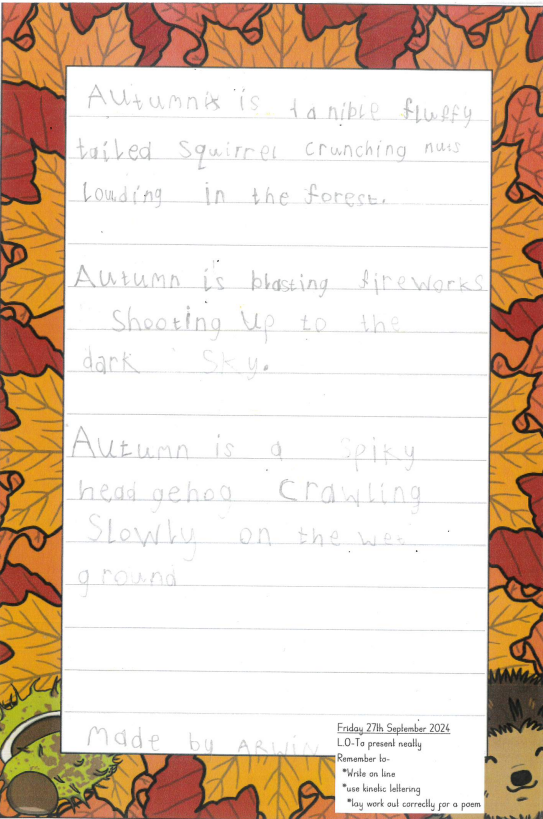 Autumn is tanible fluffy
tailed squirrel crunching nuts
Louding in the forest.
Autumn is blasting fireworks
Shooting Up to the
dark Sky.
Autumn is a Spiky
head gehog Crawling
Slowly on the wet
ground
Made by ARWIN
Friday 27th September 2024
L.O-To present neatly
Remember to-
*Write on line
*use kinetic lettering
*lay work out correctly for a poem